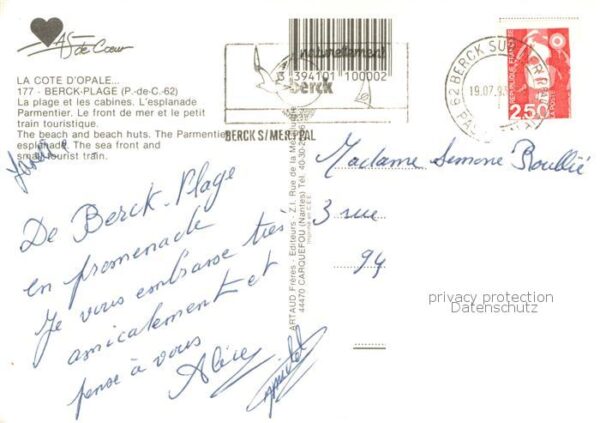 As de Cœur
LA COTE D'OPALE...
177 - BERCK-PLAGE (P.-de-C.-62)
La plage et les cabines. L'esplanade
Parmentier. Le front de mer et le petit
train touristique.
The beach and beach huts. The Parmentier
esplanade. The sea front and
small tourist train.
De Berck-Plage
en promenade
Je vous embrasse très
amicalement et
pense à vous
Alice
naturellement
3 394101 100002
Berck
BERCK S/MER/PAL
ARTAUD Frères - Editeurs - Z.I. Rue de la Mé
44470 CARQUEFOU (Nantes) Tél. 40-30-
62 BERCK SUR
19.07.9
REPUBLIQUE FRANÇAISE
LA POSTE
2,50
Madame Simone
3 rue
94
privacy protection
Datenschutz